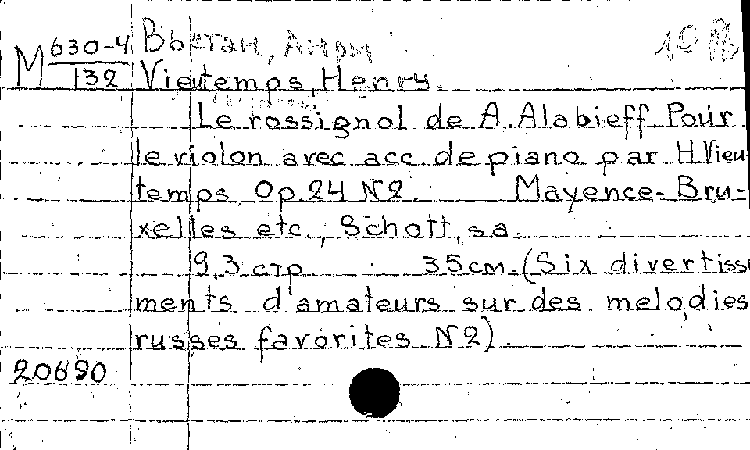 М 630-4/132 Вьетан, Анри
Vieutemps, Henry.
Le rossignol de A. Alabieff Pour
le violon avec acc. de piano par H. Vieu-
temps Op. 24 N2. Mayence-Bru-
xelles etc., Schott, s.a.
9,3 стр 35 см. (Six divertisse
ments d'amateurs sur des melodies
russes favorites N2).
20690